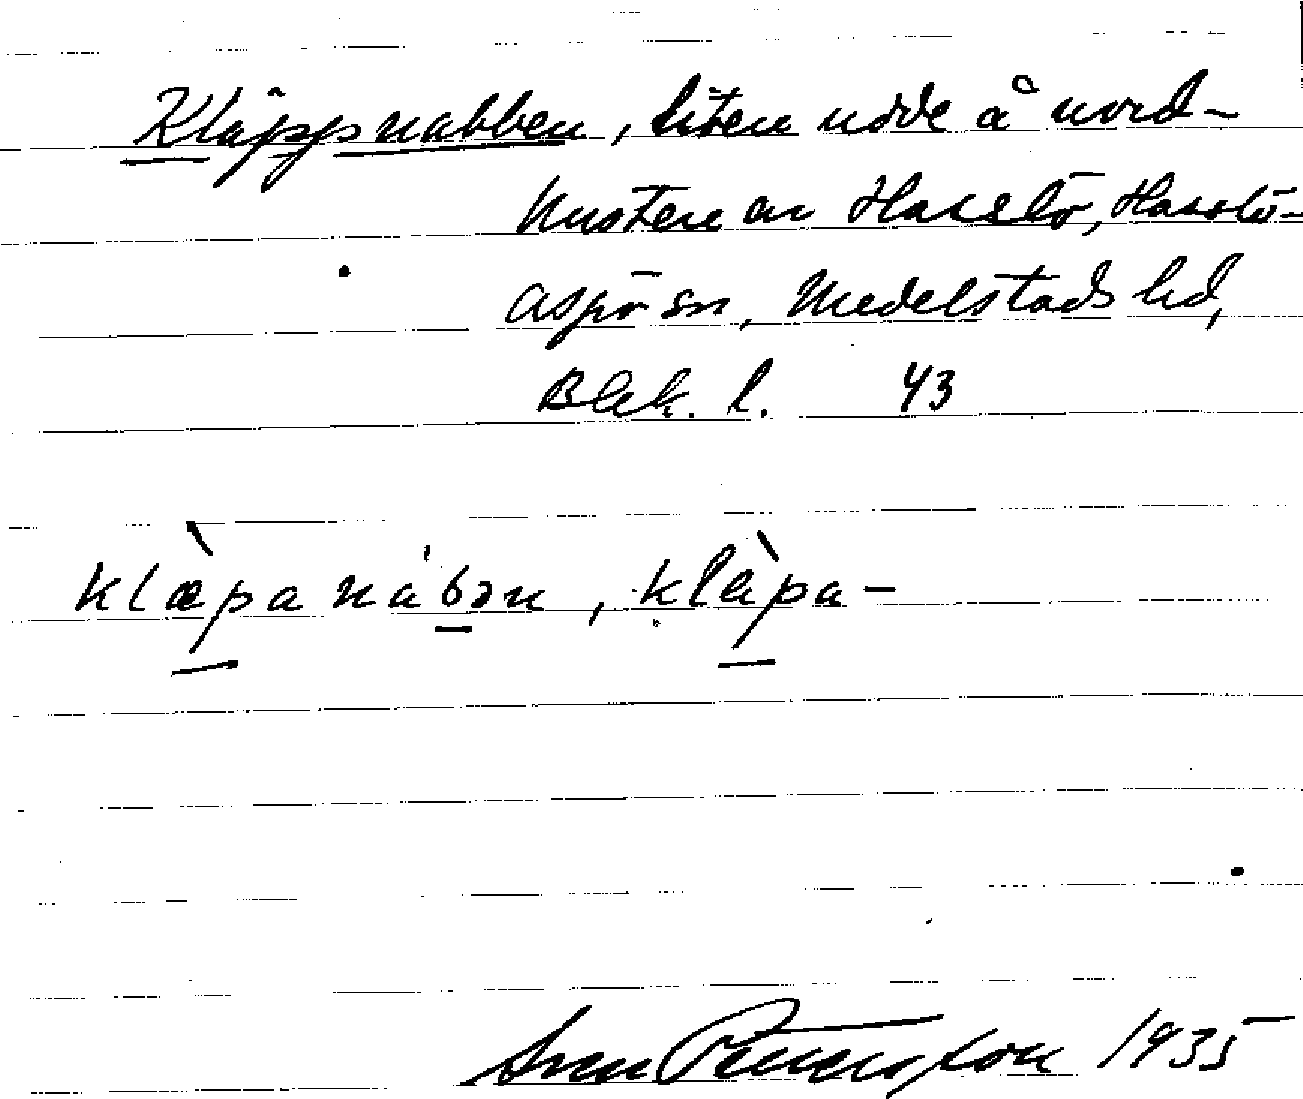 Kläppnabben, liten udde å nord-
kusten av Hasslö, Hasslö-
Aspö sn, Medelstads hd,
Blek. l. 43
klæ̀panábən, klàpa-
Sven 1935